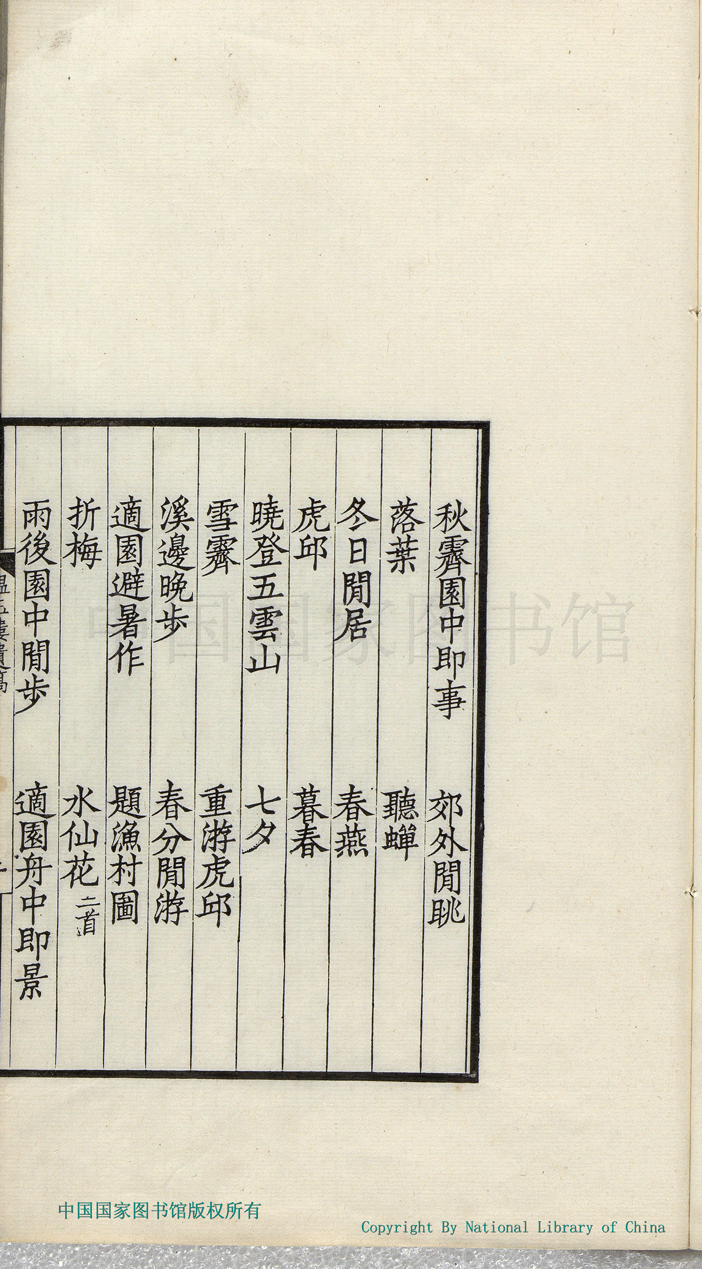 秋霽園中即事　郊外閒眺
落葉　聽蟬
冬日閒居　春燕
虎邱　暮春
曉登五雲山　七夕
雪霽　重游虎邱
溪邊晚步　春分閒游
適園避暑作　題漁村圖
折梅　水仙花二首
雨後園中閒步　適園舟中即景
中国国家图书馆
中国国家图书馆版权所有
Copyright By National Library of China